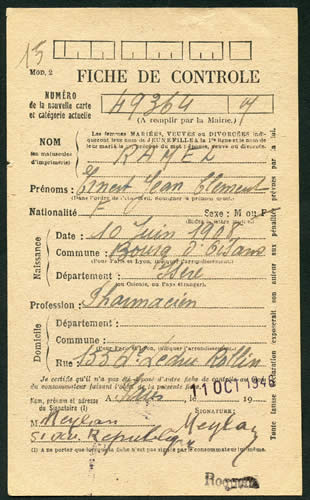 15
MOD. 2
FICHE DE CONTROLE
NUMÉRO
de la nouvelle carte
et catégorie actuelle
49364 M
(A remplir par la Mairie.)
NOM
(en majuscules
d'imprimerie)
Les femmes MARIÉES, VEUVES ou DIVORCÉES indi-
queront leur nom de JEUNE FILLE à la 1re ligne et le nom de
leur mari à la
RAMEL
Prénoms : Ernest Jean Clément
(Dans l'ordre de l'état civil. Souligner le prénom usuel.)
Nationalité F Sexe : M ou F
Naissance
Date : 10 Juin 1908
Commune : Bourg d'Oisans
(Pour Paris et Lyon, indiquer l'arrondissement.)
Département : Isère
(ou Colonie, ou Pays étranger).
Profession : Pharmacien
Domicile
Département :
Commune :
(Pour Paris et Lyon, indiquer l'arrondissement.)
Rue 153 Ledru Rollin
Je certifie qu'il n'a pas été déposé d'autre fiche de contrôle au nom
du consommateur faisant l'objet de la présente.
A le 19
11 OCT 1946
Nom, prénom et adresse
du Signataire (1)
SIGNATURE:
Meylan
Meylan
51 av. République
(1) A ne porter que lorsque la fiche n'est pas signée par le consommateur lui-même.